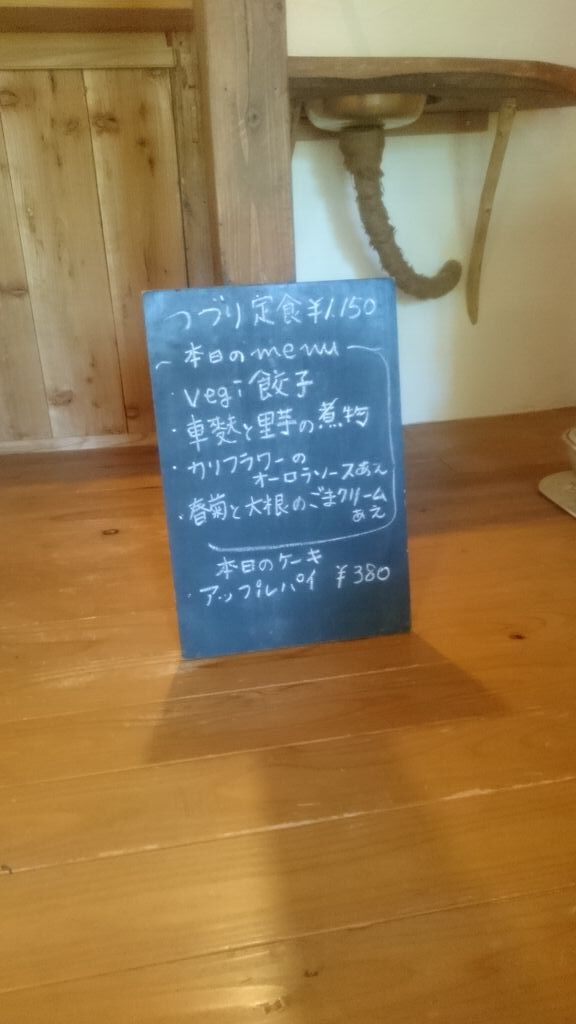 つづり定食¥1.150
本日のmenu
・vegi餃子
・車麩と里芋の煮物
・カリフラワーの
オーロラソースあえ
・春菊と大根のごまクリーム
あえ
本日のケーキ
・アップルパイ ¥380